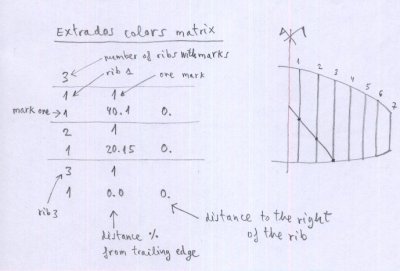 Extrados colors matrix
number of ribs with marks
3
rib 1
one mark
1 1
mark one 1 40.1 0.
2 1
1 20.15 0.
3 1
1 0.0 0.
rib 3
distance %
from trailing edge
distance to the right
of the rib
1 2 3 4 5 6 7